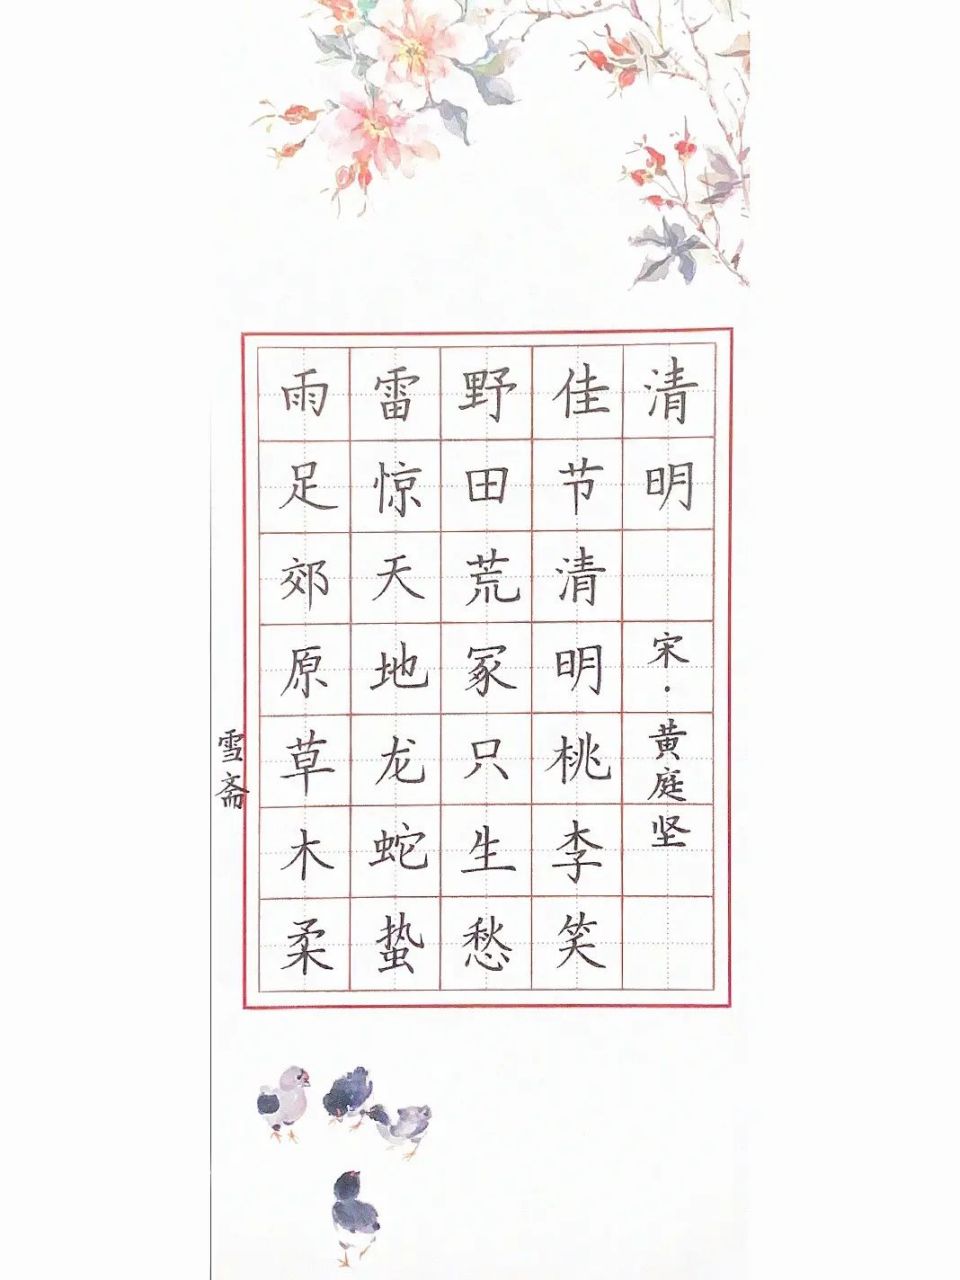 清明 宋·黄庭坚
佳节清明桃李笑
野田荒冢只生愁
雷惊天地龙蛇蛰
雨足郊原草木柔
雪斋